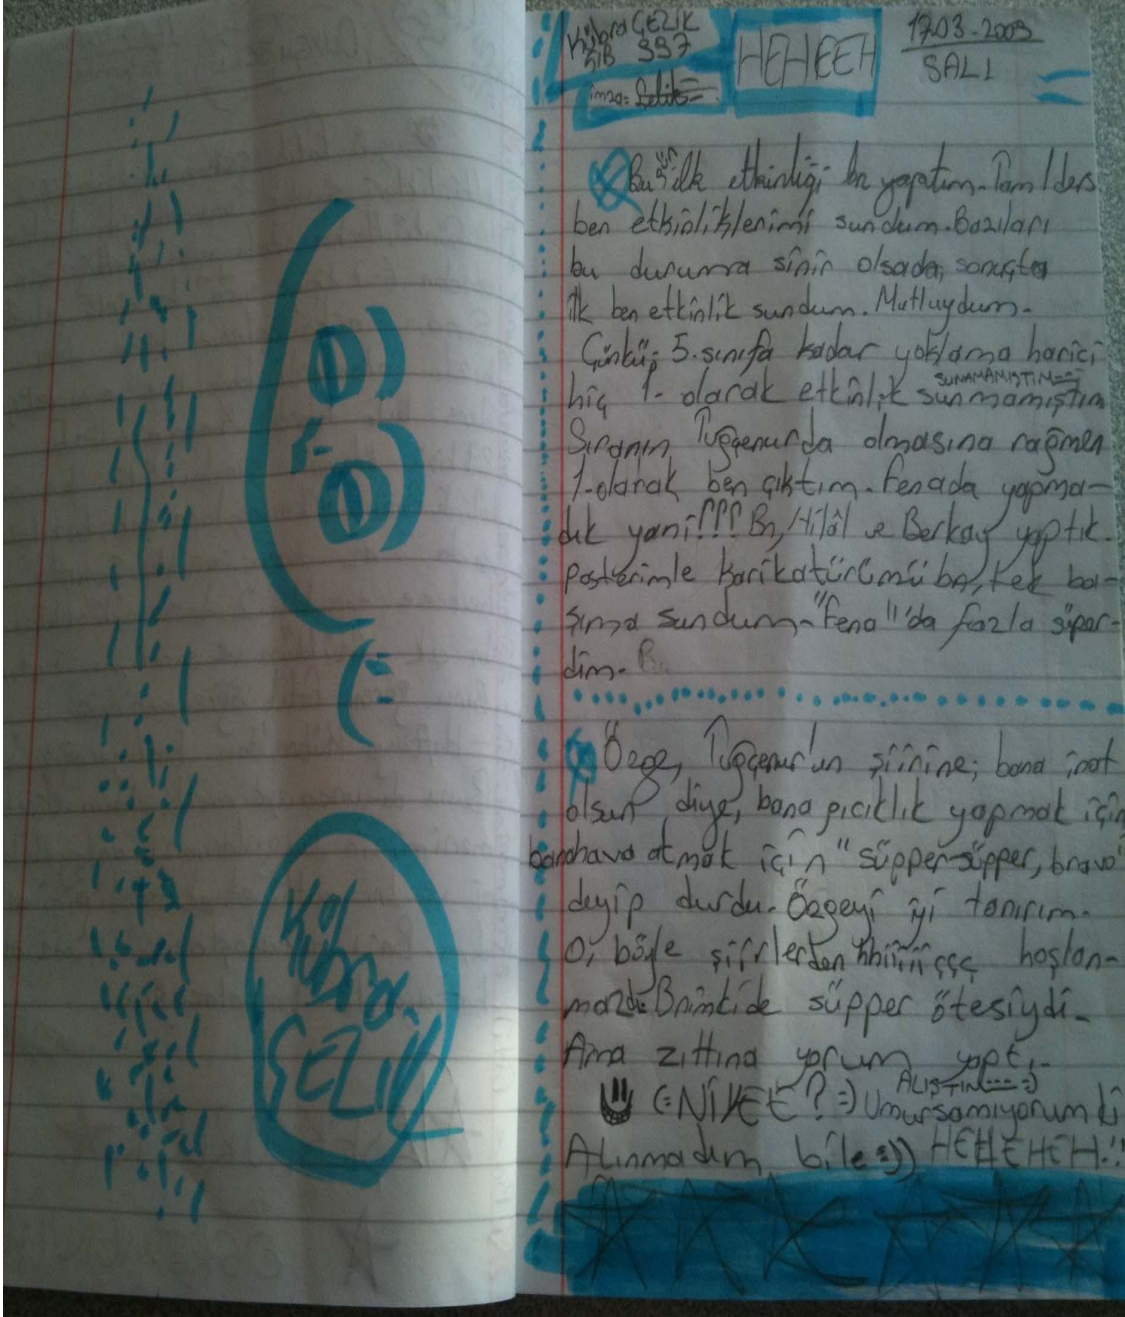 Kübra ÇEZİK
Kübra GEZİK
5/B 397
imza:
HEHEEH
17.03.2009
SALI
Bugün ilk etkinliği bn yapatım. Tam 1 ders
ben etkinliklerimi sundum. Bazıları
bu duruma sinir olsada, sonuçta
ilk ben etkinlik sundum. Mutluydum.
Çünkü; 5. sınıfa kadar yoklama harici
SUNAMAMIŞTIM
hiç 1. olarak etkinlik sunmamıştım
Sıranın Tuğçenurda olmasına rağmen
1. olarak ben çıktım. Fenada yapma-
dık yani!!! Bn, Hilâl ve Berkay yaptık.
Posterimle karikatürümü bn, tek ba-
şıma sundum. "Fena"da fazla süper-
dim.
Özge, Tuğçenur'un şiirine; bana inat
olsun diye, bana gıcıklık yapmak için
banahava atmak için "süpper-süpper, bravo"
deyip durdu. Özgeyi iyi tanırım.
O, böyle şiirlerden hhiiiiççç hoşlan-
mazdı. Bnimkide süpper ötesiydi.
Ama zıttına yorum yaptı.
ALIŞTIM---:)
(=NİYEE?=) Umursamıyorumki
Alınmadım bile=)) HEHEHEH!!